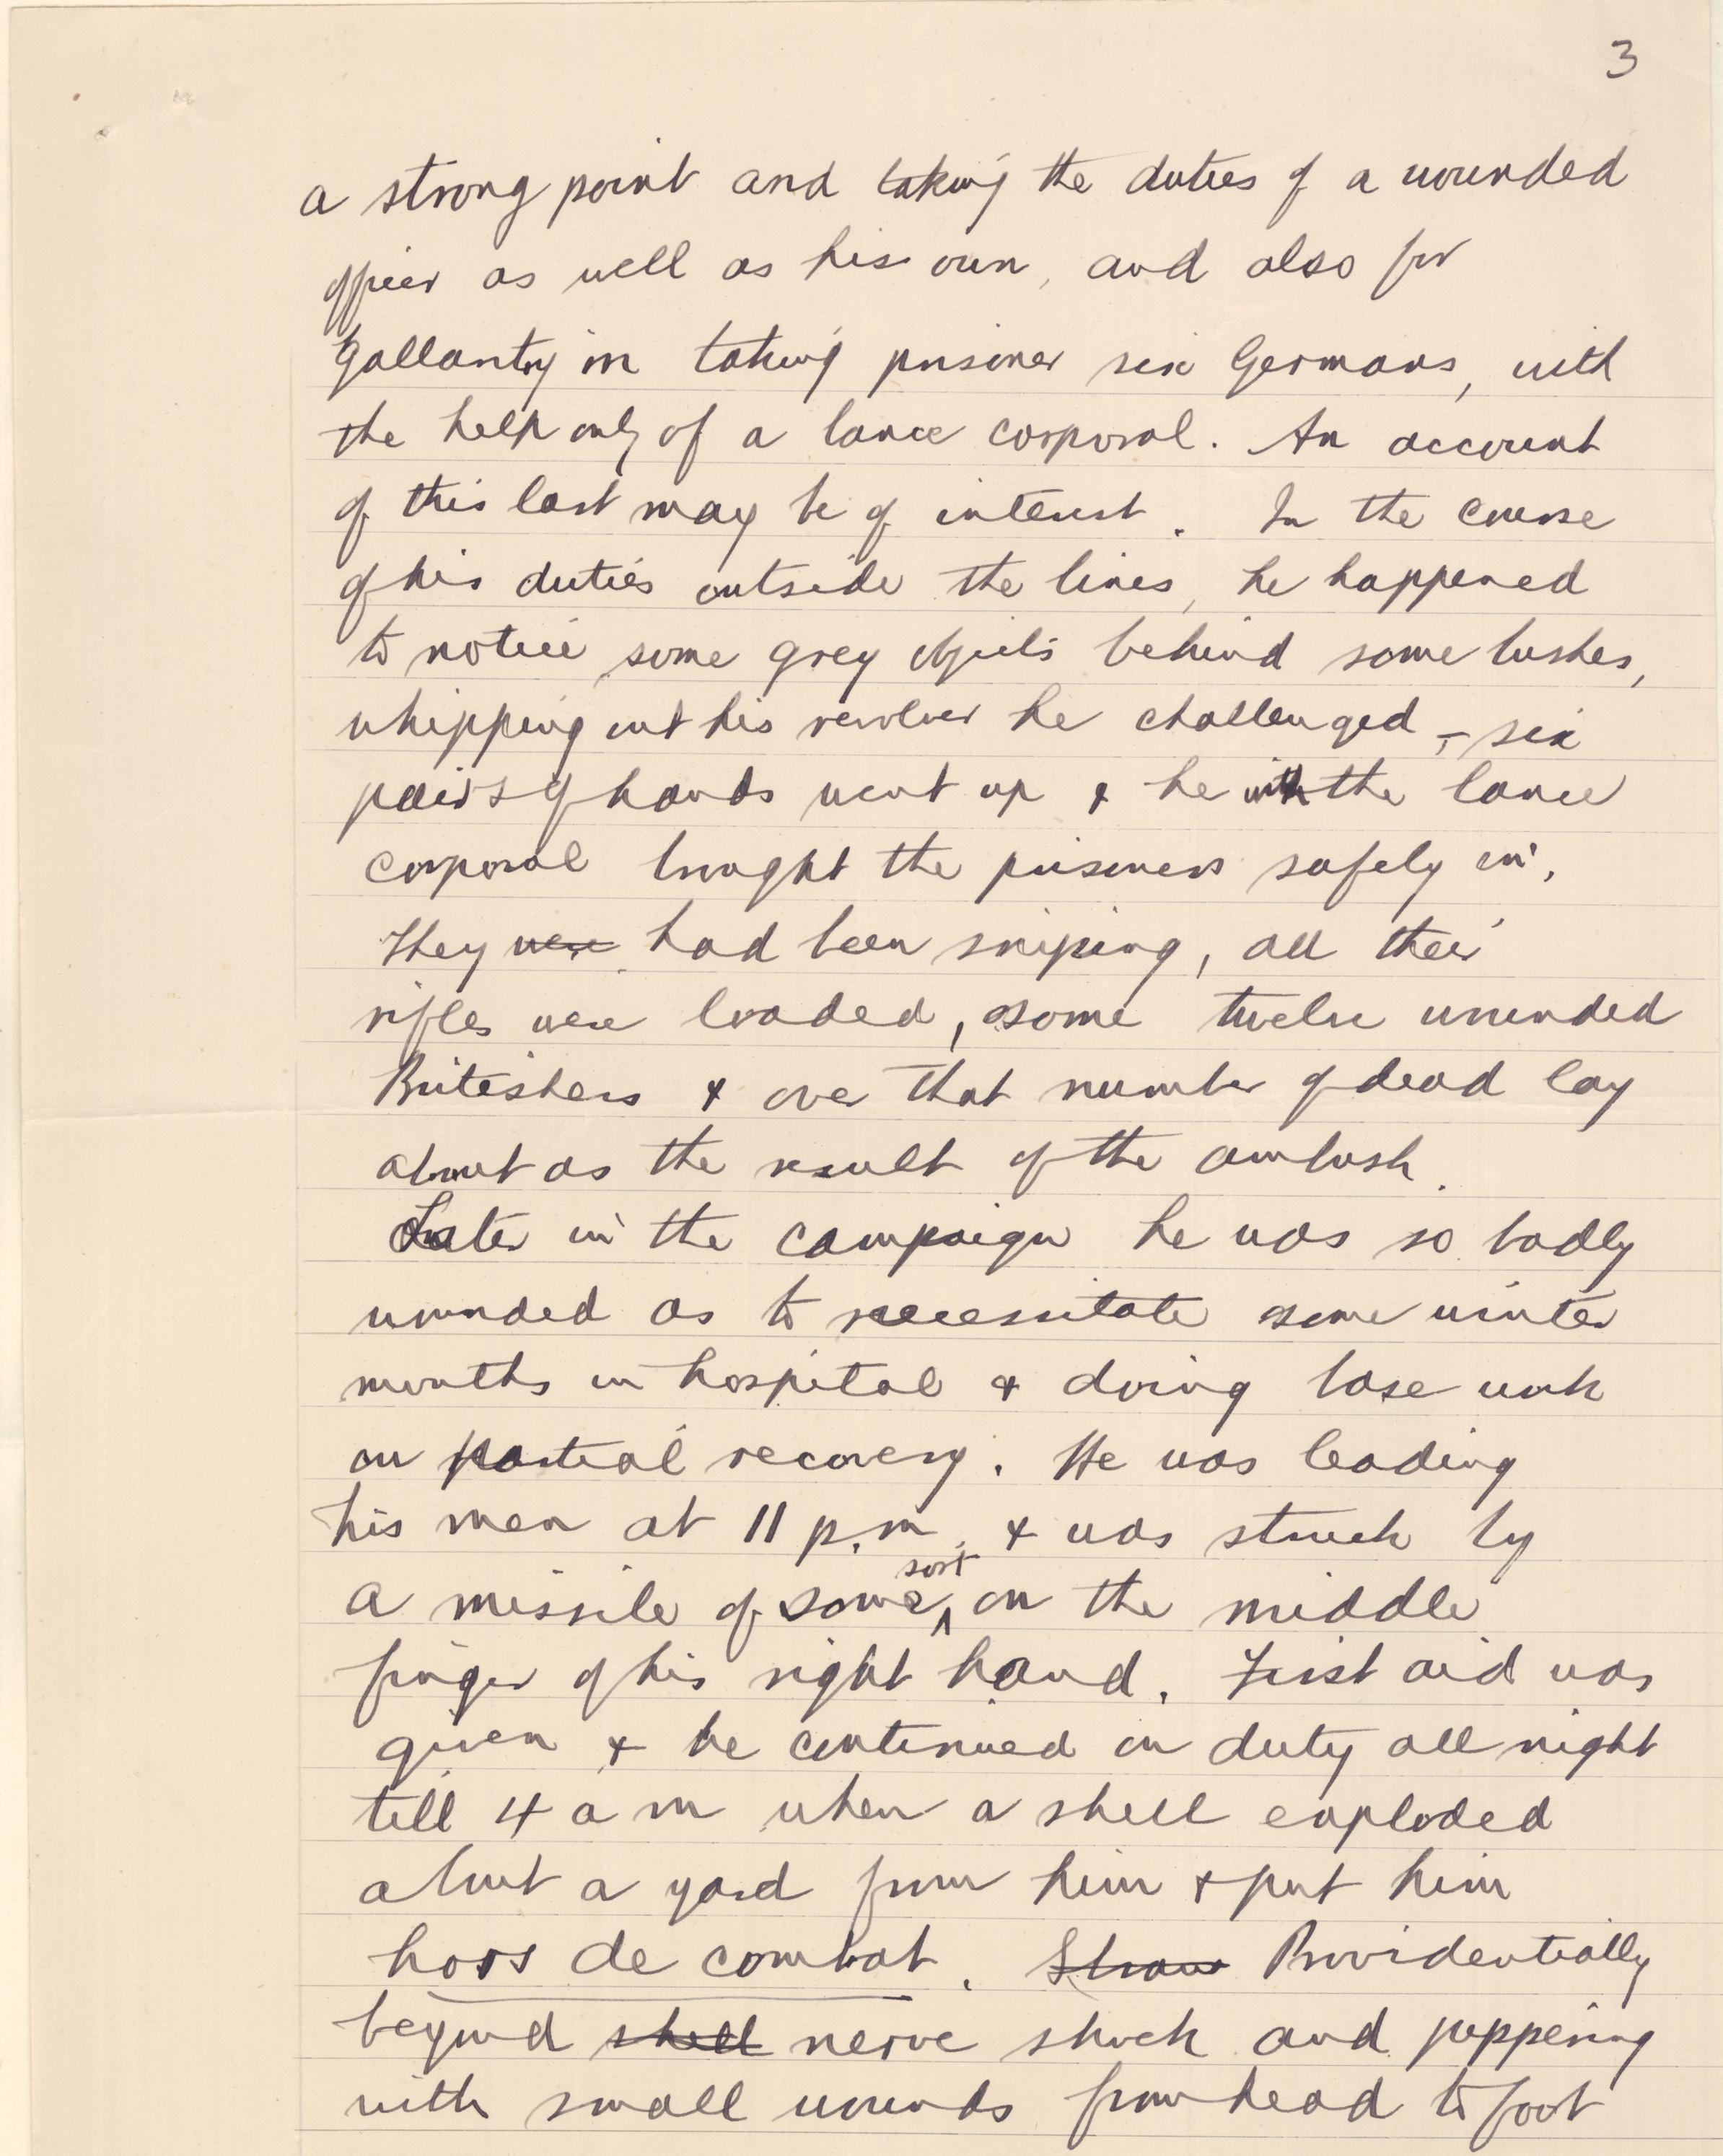 3
a strong point and taking the duties of a wounded
officer as well as his own, and also for
Gallantry in taking prisoner six Germans, with
the help only of a lance corporal. An account
of this last may be of interest. In the course
of his duties outside the lines, he happened
to notice some grey objects behind some bushes,
whipping out his revolver he challenged, - six
pairs of hands went up & he with the lance
corporal brought the prisoners safely in,
They were had been sniping, all their
rifles were loaded, some twelve wounded
Britishers & over that number of dead lay
about as the result of the ambush.
Later in the campaign he was so badly
wounded as to necessitate some winter
months in hospital & doing base work
on partial recovery. He was leading
his men at 11 p.m. & was struck by
a missile of some sort on the middle
finger of his right hand. First aid was
given & he continued on duty all night
till 4 a m when a shell exploded
about a yard from him & put him
hors de combat. Providentially
beyond shell nerve shock and peppering
with small wounds from head to foot